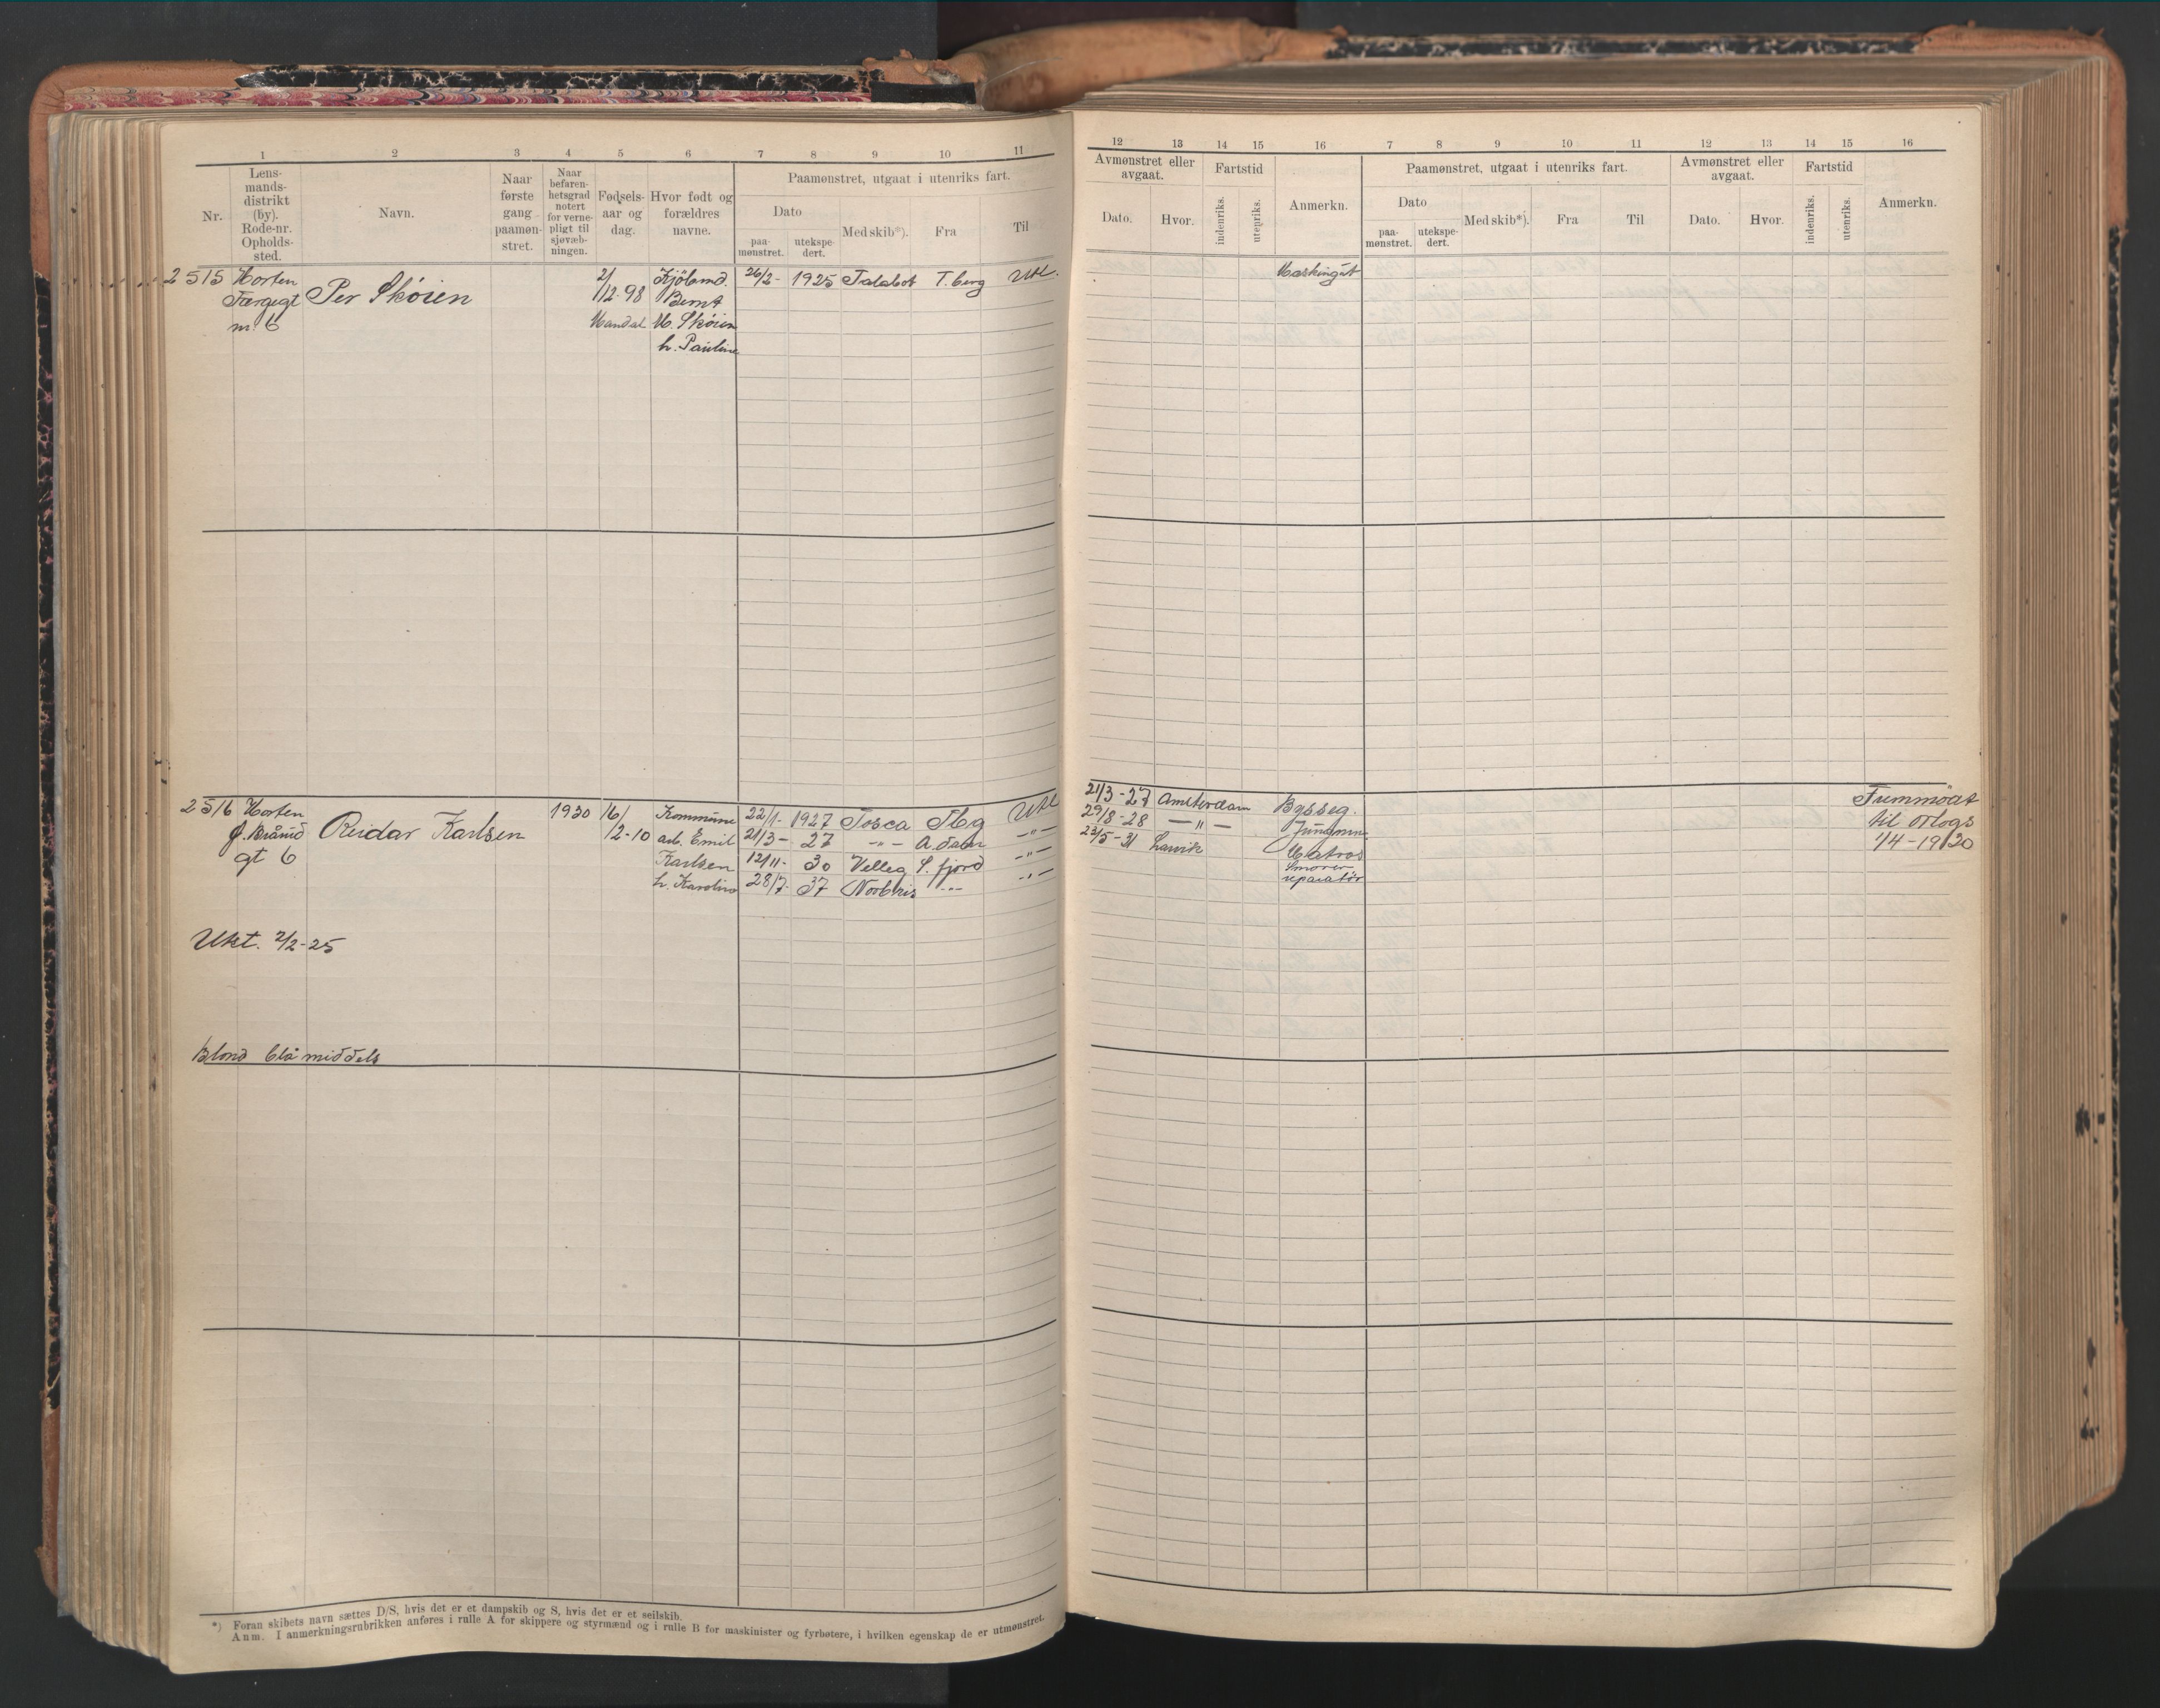 1 2 3 4 5 6 7 8 9 10 11
Nr.
Lens-
mands-
distrikt
(by).
Rode-nr.
Opholds-
sted.
Navn.
Naar
første
gang
paamøn-
stret.
Naar
befaren-
hetsgrad
notert
for verne-
pligt til
sjøvæb-
ningen.
Fødsels-
aar og
dag.
Hvor født og
forældres
navne.
Paamønstret, utgaat i utenriks fart.
Dato
paa-
mønstret.
utekspe-
dert.
Med skib*).
Fra
Til
2515 Horten Per Sköien 2/ 26/2- 1925 Talabot T.berg Utl.
Færgegt /12-98 Bernt
nr. 6 Mandal M. Sköien
h. Pauline
2516 Horten Reidar Karlsen 1930 16/ Kommune 22/1- 1927 Tosca Tbg Utl
gt 6 /2-10 arb. Emil 21/3- 27 -"- A.dam -"-
Karlsen 12/11- 30 Velleg S.fjord -"-
h. Karoline 28/7- 37 -"- -"-
Utkt. 2/2-25
Blond blå middels
*) Foran skibets navn sættes D/S, hvis det er et dampskib og S, hvis det er et seilskib.
Anm. I anmerkningsrubrikken anføres i rulle A for skippere og styrmænd og i rulle B for maskinister og fyrbøtere, i hvilken egenskap de er utmønstret.
12 13 14 15 16 7 8 9 10 11 12 13 14 15 16
Avmønstret eller
avgaat.
Dato.
Hvor.
Fartstid
indenriks.
utenriks.
Anmerkn.
Paamønstret, utgaat i utenriks fart.
Dato
paa-
mønstret.
utekspe-
dert.
Med skib*).
Fra
Til
Avmønstret eller
avgaat.
Dato.
Hvor.
Fartstid
indenriks.
utenriks.
Anmerkn.
Maskingat
21/3-27 Amsterdam Bysseg.
29/8-28 -"- Jungmn
23/5-31 Larvik Matros
Smører
reparatör
Fremmöat
til Orlogs
1/4-1930